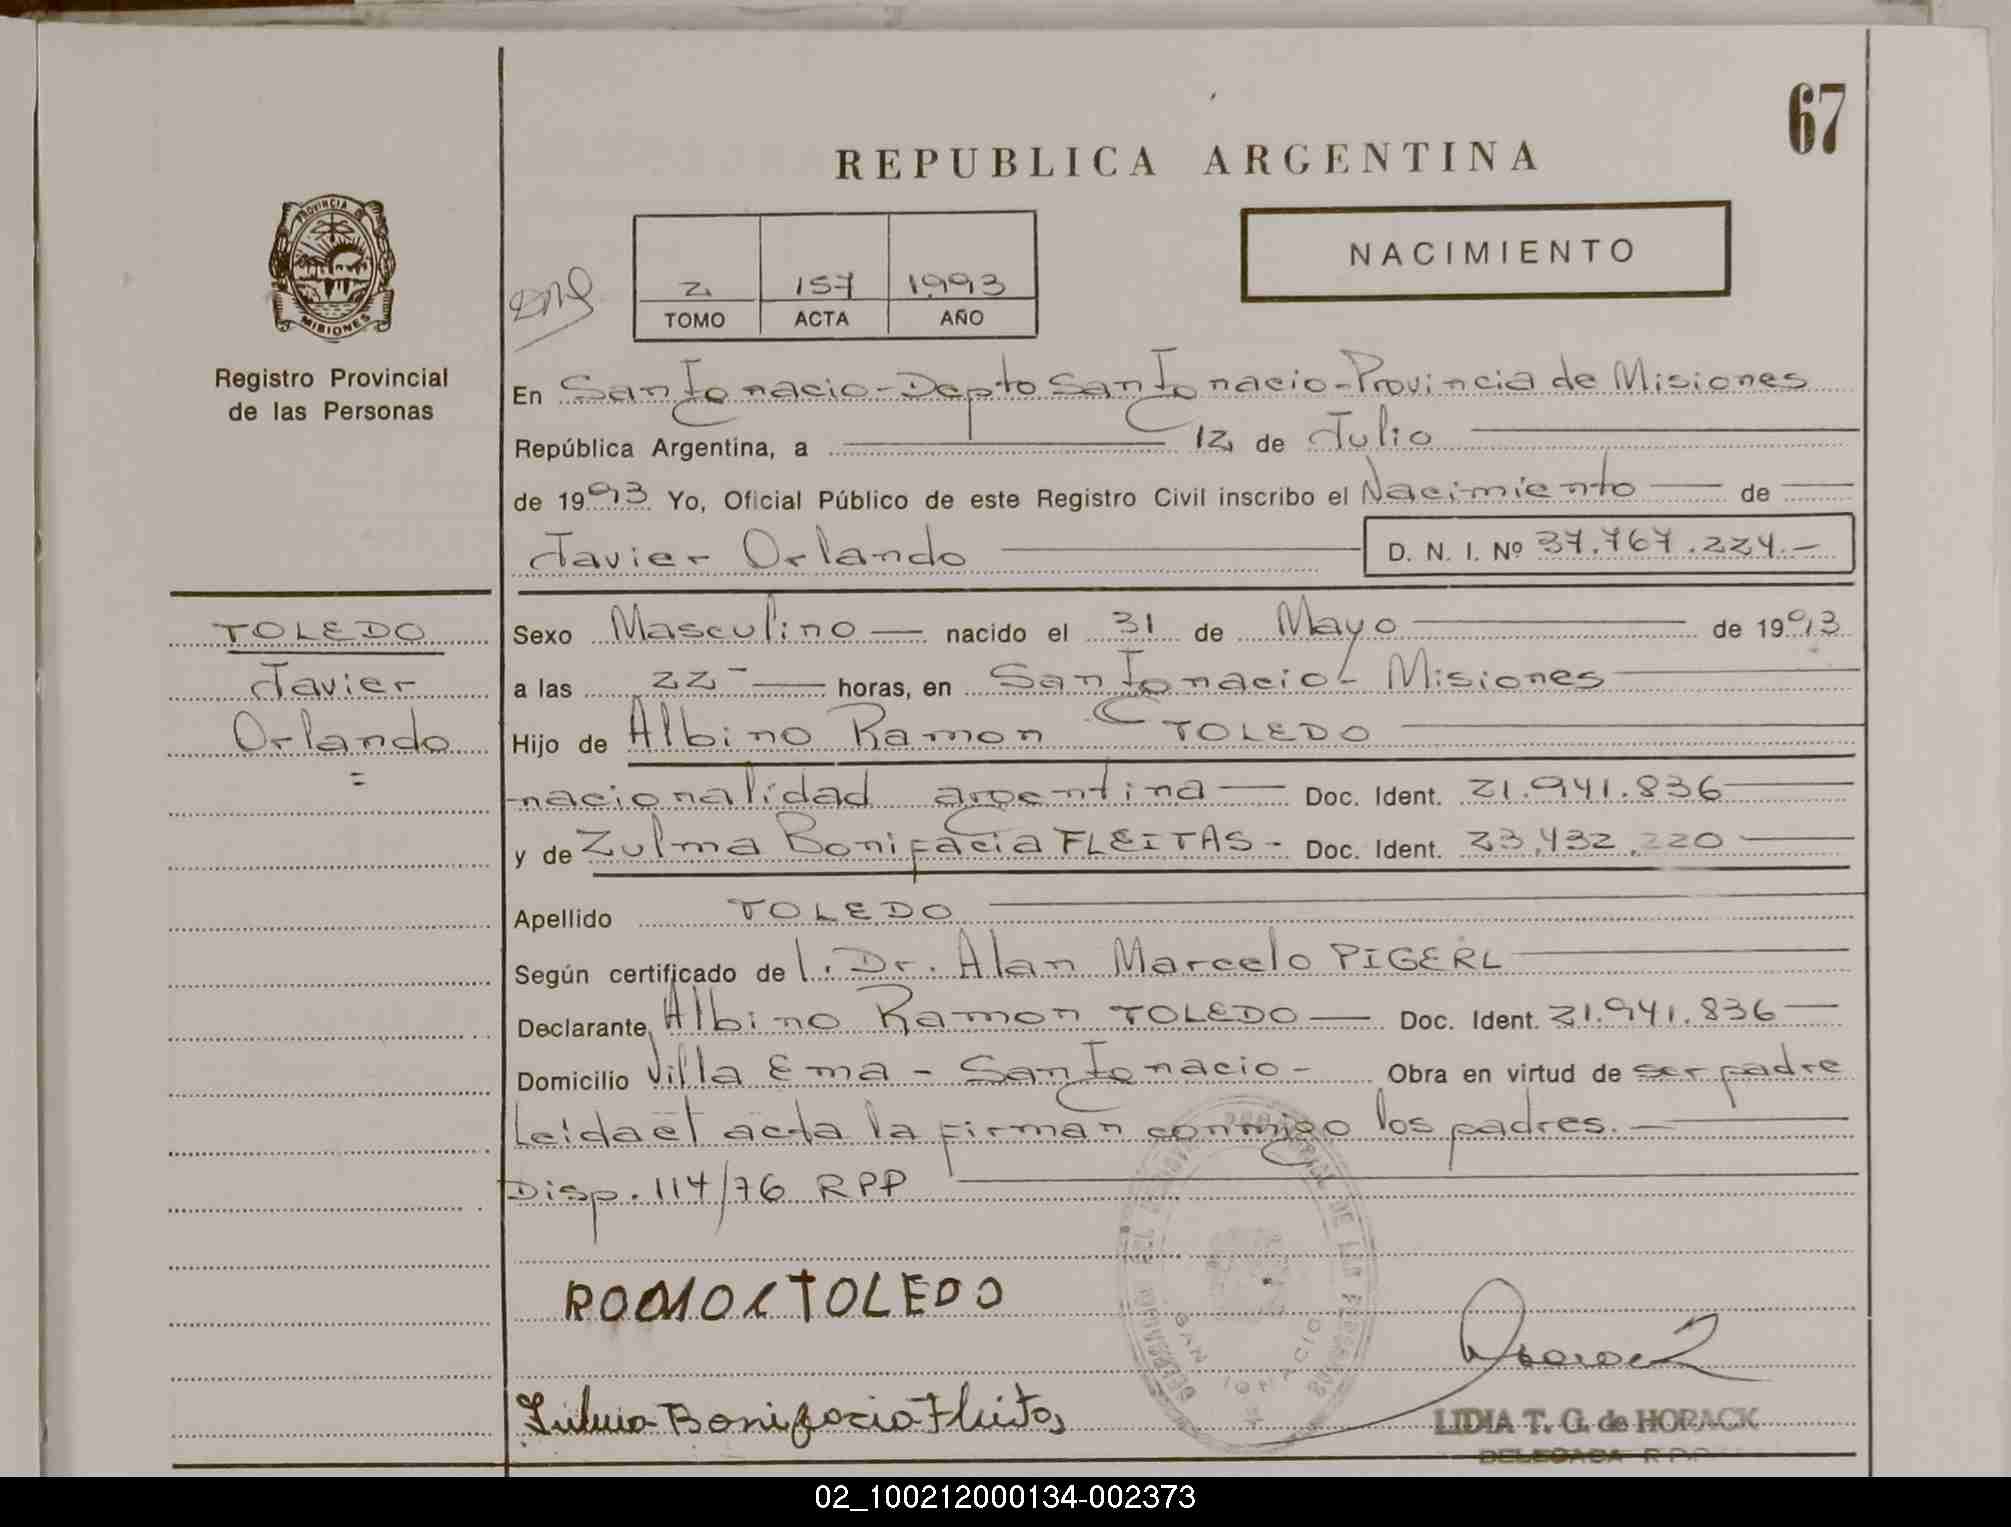 67
REPUBLICA ARGENTINA
PROVINCIA DE
MISIONES
NACIMIENTO
2 157 1993
TOMO ACTA AÑO
Registro Provincial
de las Personas
En San Ignacio - Depto San Ignacio - Provincia de Misiones
República Argentina, a 12 de Julio
de 1993 Yo, Oficial Público de este Registro Civil inscribo el Nacimiento de
Javier Orlando D. N. I. Nº 37.767.224.-
TOLEDO
Javier
Orlando
=
Sexo Masculino nacido el 31 de Mayo de 1993
a las 22 horas, en San Ignacio - Misiones
Hijo de Albino Ramon TOLEDO
nacionalidad argentina Doc. Ident. 21.941.836
y de Zulma Bonifacia FLEITAS - Doc. Ident. 23.432.220
Apellido TOLEDO
Según certificado de l. Dr. Alan Marcelo PIGERL
Declarante, Albino Ramon TOLEDO Doc. Ident. 21.941.836
Domicilio Villa Ema - San Ignacio - Obra en virtud de ser padre
Leida el acta la firman conmigo los padres.
Disp. 114/76 RPP
TOLEDO
Bonifacia Fleitas
SAN IGNACIO
LIDIA T. G. de HORACK
DELEGADA R.P.P.
02_100212000134-002373